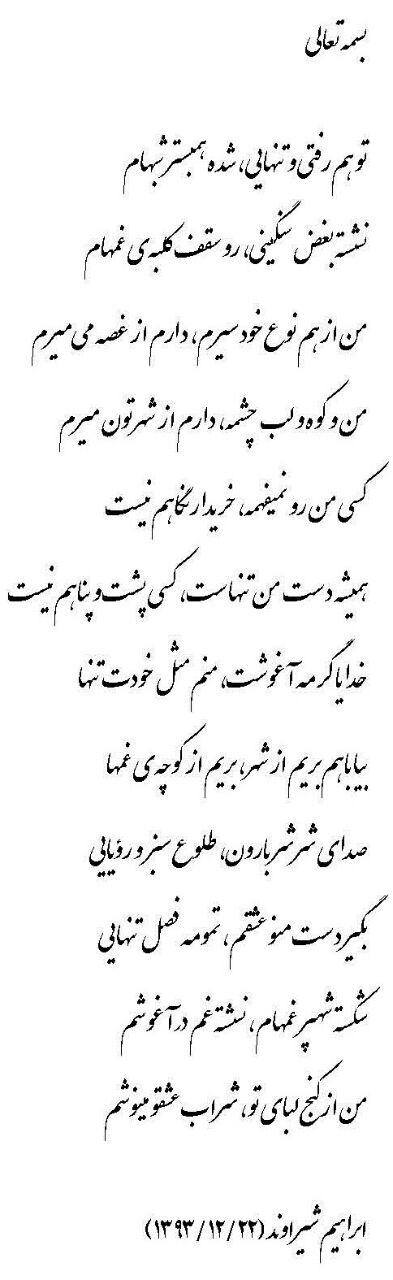 بسمه تعالی
تو هم رفتی و تنهایی، شده همبستر شبهام
نشسته بغض سنگینی، رو سقف کلبه‌ی غمهام
من از هم نوع خود سیرم، دارم از غصه می‌میرم
من و کوه و لب چشمه، دارم از شهرتون میرم
کسی من رو نمیفهمه، خریدار نگاهم نیست
همیشه دست من تنهاست، کسی پشت و پناهم نیست
خدایا گرمه آغوشت، منم مثل خودت تنها
بیا باهم بریم از شهر، بریم از کوچه‌ی غمها
صدای شرشر بارون، طلوع سبز و رؤیایی
بگیر دست منو عشقم، تمومه فصل تنهایی
شکسته شهپر غمهام، نشسته غم در آغوشم
من از کنج لبای تو، شراب عشقو مینوشم
ابراهیم شیراوند (۱۳۹۳/۱۲/۲۲)